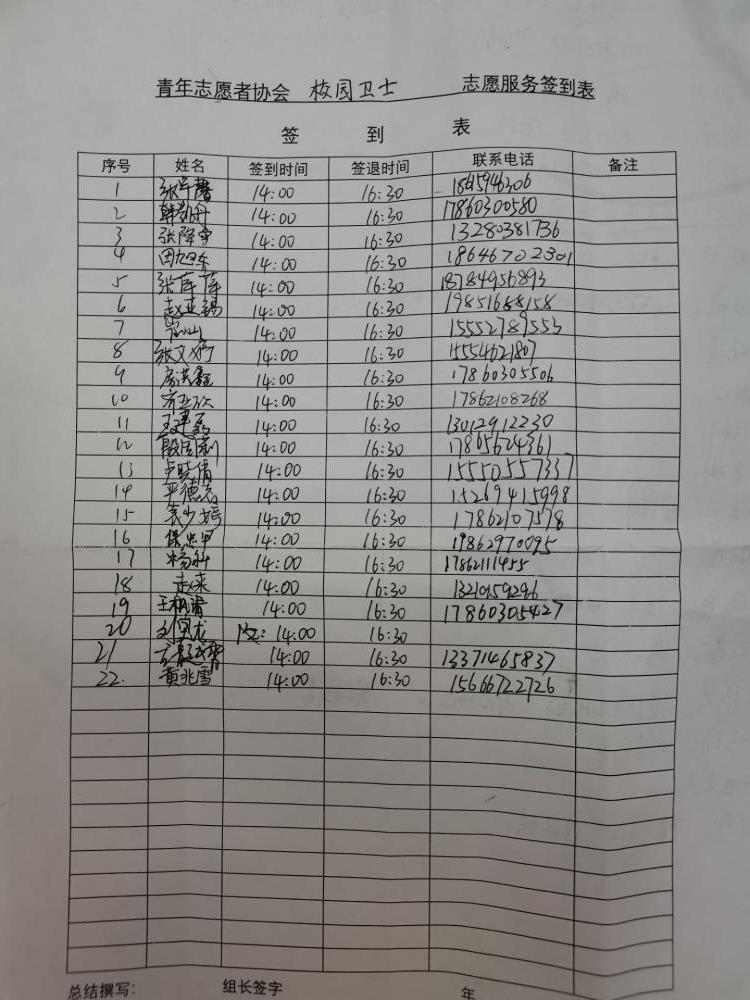 青年志愿者协会 校园卫士 志愿服务签到表
签 到 表
序号 姓名 签到时间 签退时间 联系电话 备注
1 14:00 16:30
2 14:00 16:30 17860300580
3 14:00 16:30 13280381736
4 14:00 16:30 18646702301
5 张萍萍 14:00 16:30 18784956893
6 赵亚锡 14:00 16:30 19851658158
7 14:00 16:30 15552789553
8 张文婷 14:00 16:30 15554621807
9 房洪鑫 14:00 16:30 17860305506
10 14:00 16:30 17862108268
11 14:00 16:30 13012912230
12 14:00 16:30 17865624361
13 卢晓倩 14:00 16:30 15550557337
14 14:00 16:30 15269415998
15 袁少嫣 14:00 16:30 17862107578
16 14:00 16:30 19862970095
17 杨科 14:00 16:30 17862111455
18 14:00 16:30
19 14:00 16:30 17860305427
20 14:00 16:30
21 14:00 16:30 13371465837
22. 黄兆雪 14:00 16:30 15666722726
总结撰写: 组长签字 年